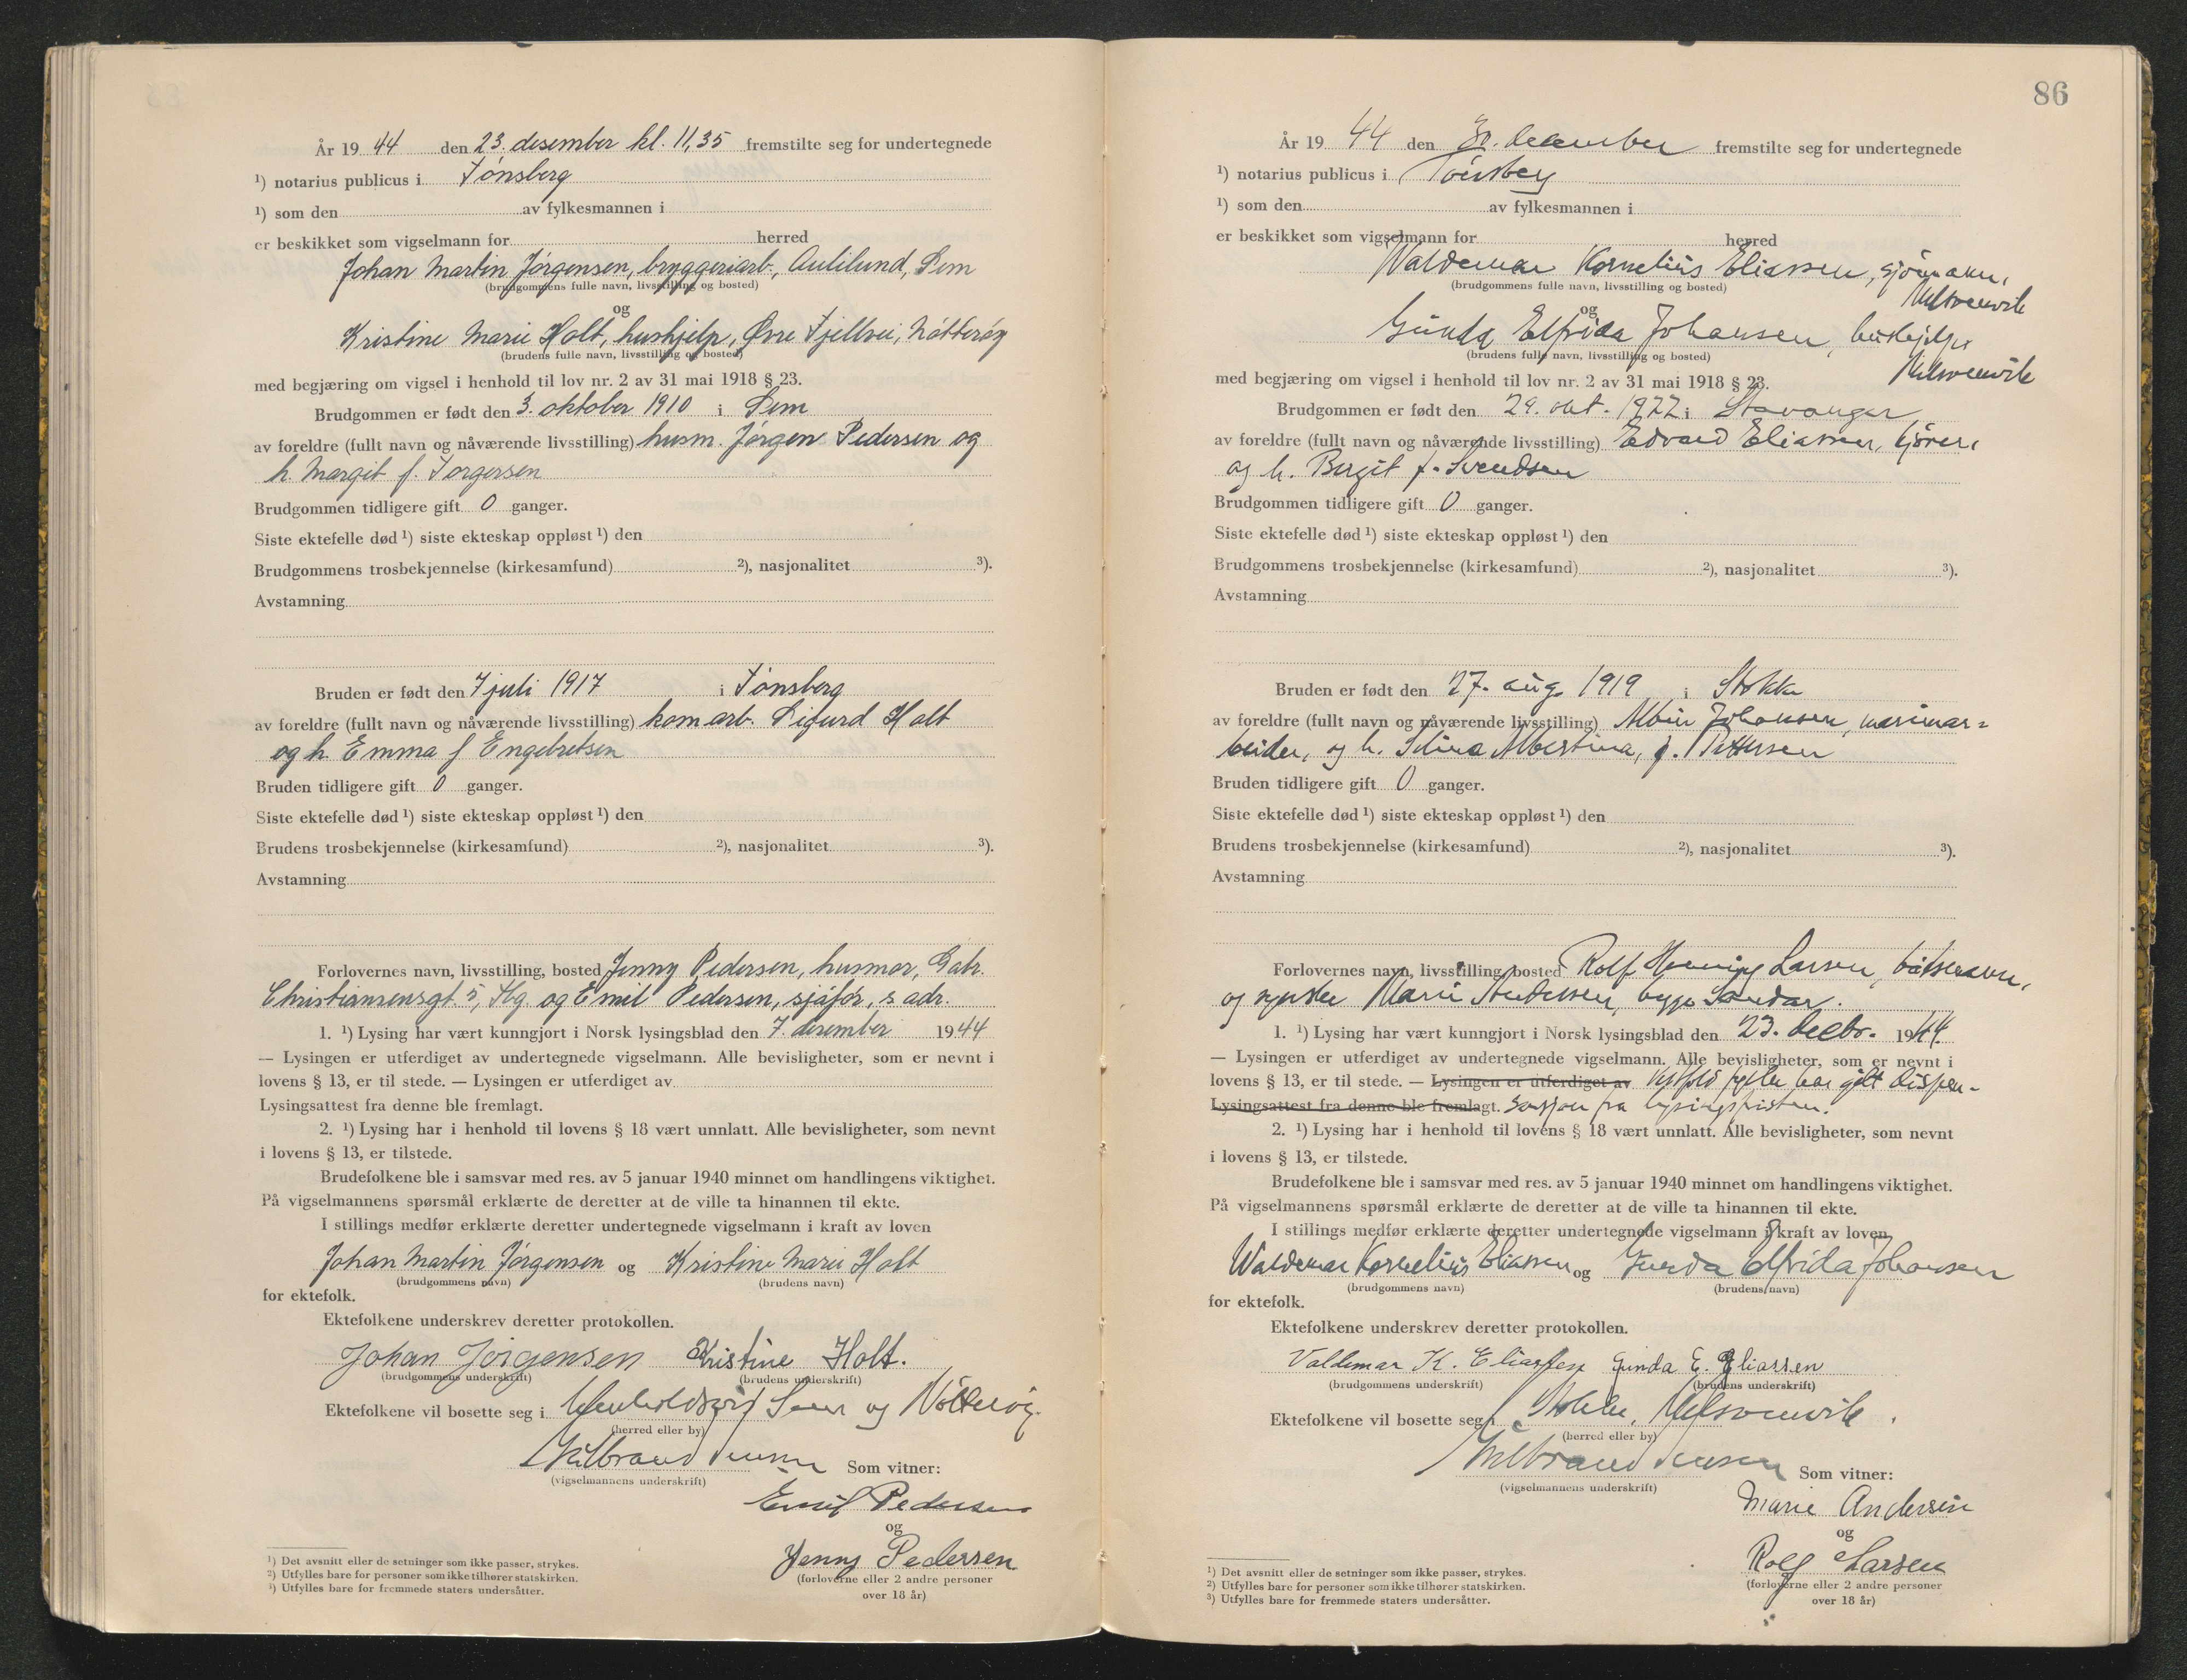 År 19 44 den 23. desember kl. 11,35 fremstilte seg for undertegnede
¹) notarius publicus i Tønsberg
¹) som den av fylkesmannen i
er beskikket som vigselmann for herred
Johan Martin Jørgensen, bryggeriarb., Aulilund, Sem
(brudgommens fulle navn, livsstilling og bosted)
og
Kristine Marie Holt, hushjelp, Øvre Fjellvei, Nøtterøy
(brudens fulle navn, livsstilling og bosted)
med begjæring om vigsel i henhold til lov nr. 2 av 31 mai 1918 § 23.
Brudgommen er født den 3. oktober 1910 i Sem
av foreldre (fullt navn og nåværende livsstilling) husm. Jørgen Pedersen og
h. Margit f. Torgersen
Brudgommen tidligere gift 0 ganger.
Siste ektefelle død ¹) siste ekteskap oppløst ¹) den
Brudgommens trosbekjennelse (kirkesamfund) ²), nasjonalitet ³).
Avstamning
Bruden er født den 7 juli 1917 i Tønsberg
av foreldre (fullt navn og nåværende livsstilling) kom arb. Sigurd Holt
og h. Emma f Engebretsen
Bruden tidligere gift 0 ganger.
Siste ektefelle død ¹) siste ekteskap oppløst ¹) den
Brudens trosbekjennelse (kirkesamfund) ²), nasjonalitet ³).
Avstamning
Forlovernes navn, livsstilling, bosted Jenny Pedersen, husmor, Gabr.
Christiansensgt. 5, Tbg og Emil Pedersen, sjåfør, s adr.
1. ¹) Lysing har vært kunngjort i Norsk lysingsblad den 7. desember 1944
— Lysingen er utferdiget av undertegnede vigselmann. Alle bevisligheter, som er nevnt i
lovens § 13, er til stede. — Lysingen er utferdiget av
Lysingsattest fra denne ble fremlagt.
2. ¹) Lysing har i henhold til lovens § 18 vært unnlatt. Alle bevisligheter, som nevnt
i lovens § 13, er tilstede.
Brudefolkene ble i samsvar med res. av 5 januar 1940 minnet om handlingens viktighet.
På vigselmannens spørsmål erklærte de deretter at de ville ta hinannen til ekte.
I stillings medfør erklærte deretter undertegnede vigselmann i kraft av loven
Johan Martin Jørgensen og Kristine Marie Holt
(brudgommens navn) (brudens navn)
for ektefolk.
Ektefolkene underskrev deretter protokollen.
Johan Jørgensen Kristine Holt.
(brudgommens underskrift) (brudens underskrift)
Ektefolkene vil bosette seg i Sem og Nøtterøy.
(herred eller by)
Som vitner:
(vigselmannens underskrift)
Emil Pedersen
og
Jenny Pedersen
(forloverne eller 2 andre personer
over 18 år)
¹) Det avsnitt eller de setninger som ikke passer, strykes.
²) Utfylles bare for personer som ikke tilhører statskirken.
³) Utfylles bare for fremmede staters undersåtter.
86
År 19 44 den 30. december fremstilte seg for undertegnede
¹) notarius publicus i Tønsberg
¹) som den av fylkesmannen i
er beskikket som vigselmann for herred
Waldemar Kornelius Eliassen, sjømann,
Melsomvik
(brudgommens fulle navn, livsstilling og bosted)
og
Gunda Elfrida Johansen, hushjelp,
(brudens fulle navn, livsstilling og bosted)
Melsomvik
med begjæring om vigsel i henhold til lov nr. 2 av 31 mai 1918 § 23.
Brudgommen er født den 29. okt. 1922 i Stavanger
av foreldre (fullt navn og nåværende livsstilling) Edvard Eliassen, kjører,
og h. Bergit f. Svendsen
Brudgommen tidligere gift 0 ganger.
Siste ektefelle død ¹) siste ekteskap oppløst ¹) den
Brudgommens trosbekjennelse (kirkesamfund) ²), nasjonalitet ³).
Avstamning
Bruden er født den 27. aug. 1919 i Stokke
av foreldre (fullt navn og nåværende livsstilling) Albin Johansen,
beider, og h. Albertina, f. Pettersen
Bruden tidligere gift 0 ganger.
Siste ektefelle død ¹) siste ekteskap oppløst ¹) den
Brudens trosbekjennelse (kirkesamfund) ²), nasjonalitet ³).
Avstamning
Forlovernes navn, livsstilling, bosted Rolf Henning Larsen, båtsmann,
og Marie Andersen, begge Sandar.
1. ¹) Lysing har vært kunngjort i Norsk lysingsblad den 23. decbr. 1944.
— Lysingen er utferdiget av undertegnede vigselmann. Alle bevisligheter, som er nevnt i
lovens § 13, er til stede. — Lysingen er utferdiget av Vestfold fylke har gitt dispen-
Lysingsattest fra denne ble fremlagt. sasjon fra lysingsfristen.
2. ¹) Lysing har i henhold til lovens § 18 vært unnlatt. Alle bevisligheter, som nevnt
i lovens § 13, er tilstede.
Brudefolkene ble i samsvar med res. av 5 januar 1940 minnet om handlingens viktighet.
På vigselmannens spørsmål erklærte de deretter at de ville ta hinannen til ekte.
I stillings medfør erklærte deretter undertegnede vigselmann i kraft av loven
Waldemar Kornelius Eliassen og Gunda Elfrida Johansen
(brudgommens navn) (brudens navn)
for ektefolk.
Ektefolkene underskrev deretter protokollen.
Valdemar K. Eliassen Gunda E. Eliassen
(brudgommens underskrift) (brudens underskrift)
Ektefolkene vil bosette seg i Stokke, Melsomvik.
(herred eller by)
Som vitner:
(vigselmannens underskrift)
Marie Andersen
og
Rolf Larsen
(forloverne eller 2 andre personer
over 18 år)
¹) Det avsnitt eller de setninger som ikke passer, strykes.
²) Utfylles bare for personer som ikke tilhører statskirken.
³) Utfylles bare for fremmede staters undersåtter.